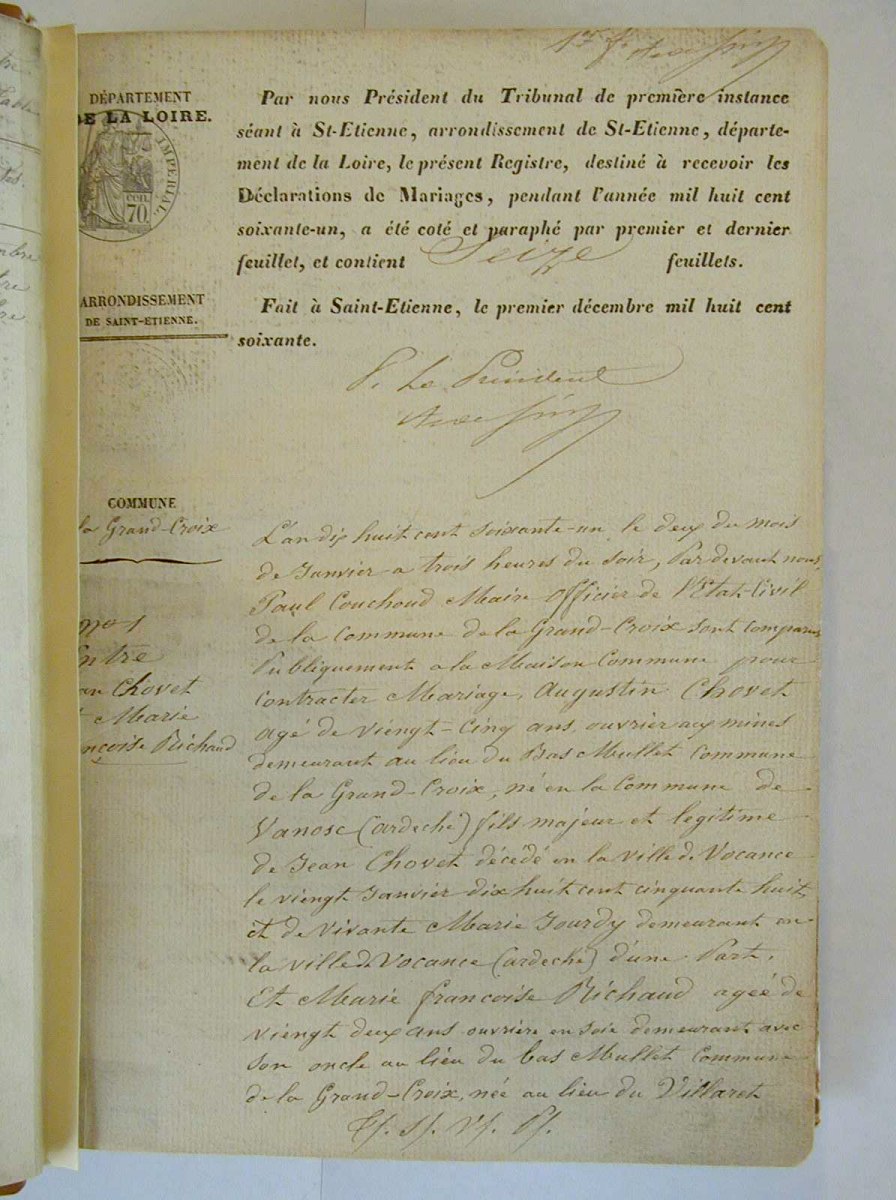 1er f.
DÉPARTEMENT
DE LA LOIRE.
IMPÉRIAL
70.
ARRONDISSEMENT
DE SAINT-ETIENNE.
Par nous Président du Tribunal de première instance
séant à St-Etienne, arrondissement de St-Etienne, départe-
ment de la Loire, le présent Registre, destiné à recevoir les
Déclarations de Mariages, pendant l'année mil huit cent
soixante-un, a été coté et paraphé par premier et dernier
feuillet, et contient Seize feuillets.
Fait à Saint-Etienne, le premier décembre mil huit cent
soixante.
P. Le Président
COMMUNE
la Grand-Croix
No 1
Entre
Chovet
Marie
Richaud
L'an dix huit cent soixante-un le deux du mois
de Janvier a trois heures du soir, Par devant nous,
Paul Couchoud Maire officier de l'Etat-Civil
de la Commune de la Grand-Croix sont comparus
Publiquement a la Maison Commune pour
contracter Mariage, Augustin Chovet
agé de viengt-Cinq ans, ouvrier aux mines
demeurant au lieu du Bas Mullet Commune
de la Grand-Croix, né en la Commune de
Vanosc (ardeche) fils majeur et legitime
de Jean Chovet décédé en la ville de Vocance
le viengt Janvier dix huit cent cinquante huit,
et de vivante Marie Jourdy demeurant en
la ville de Vocance (ardeche) d'une Part,
Et Marie françoise Richaud ageé de
viengt deux ans ouvrière en soie demeurant avec
son oncle au lieu du bas Mullet Commune
de la Grand-Croix, née au lieu du Villaret